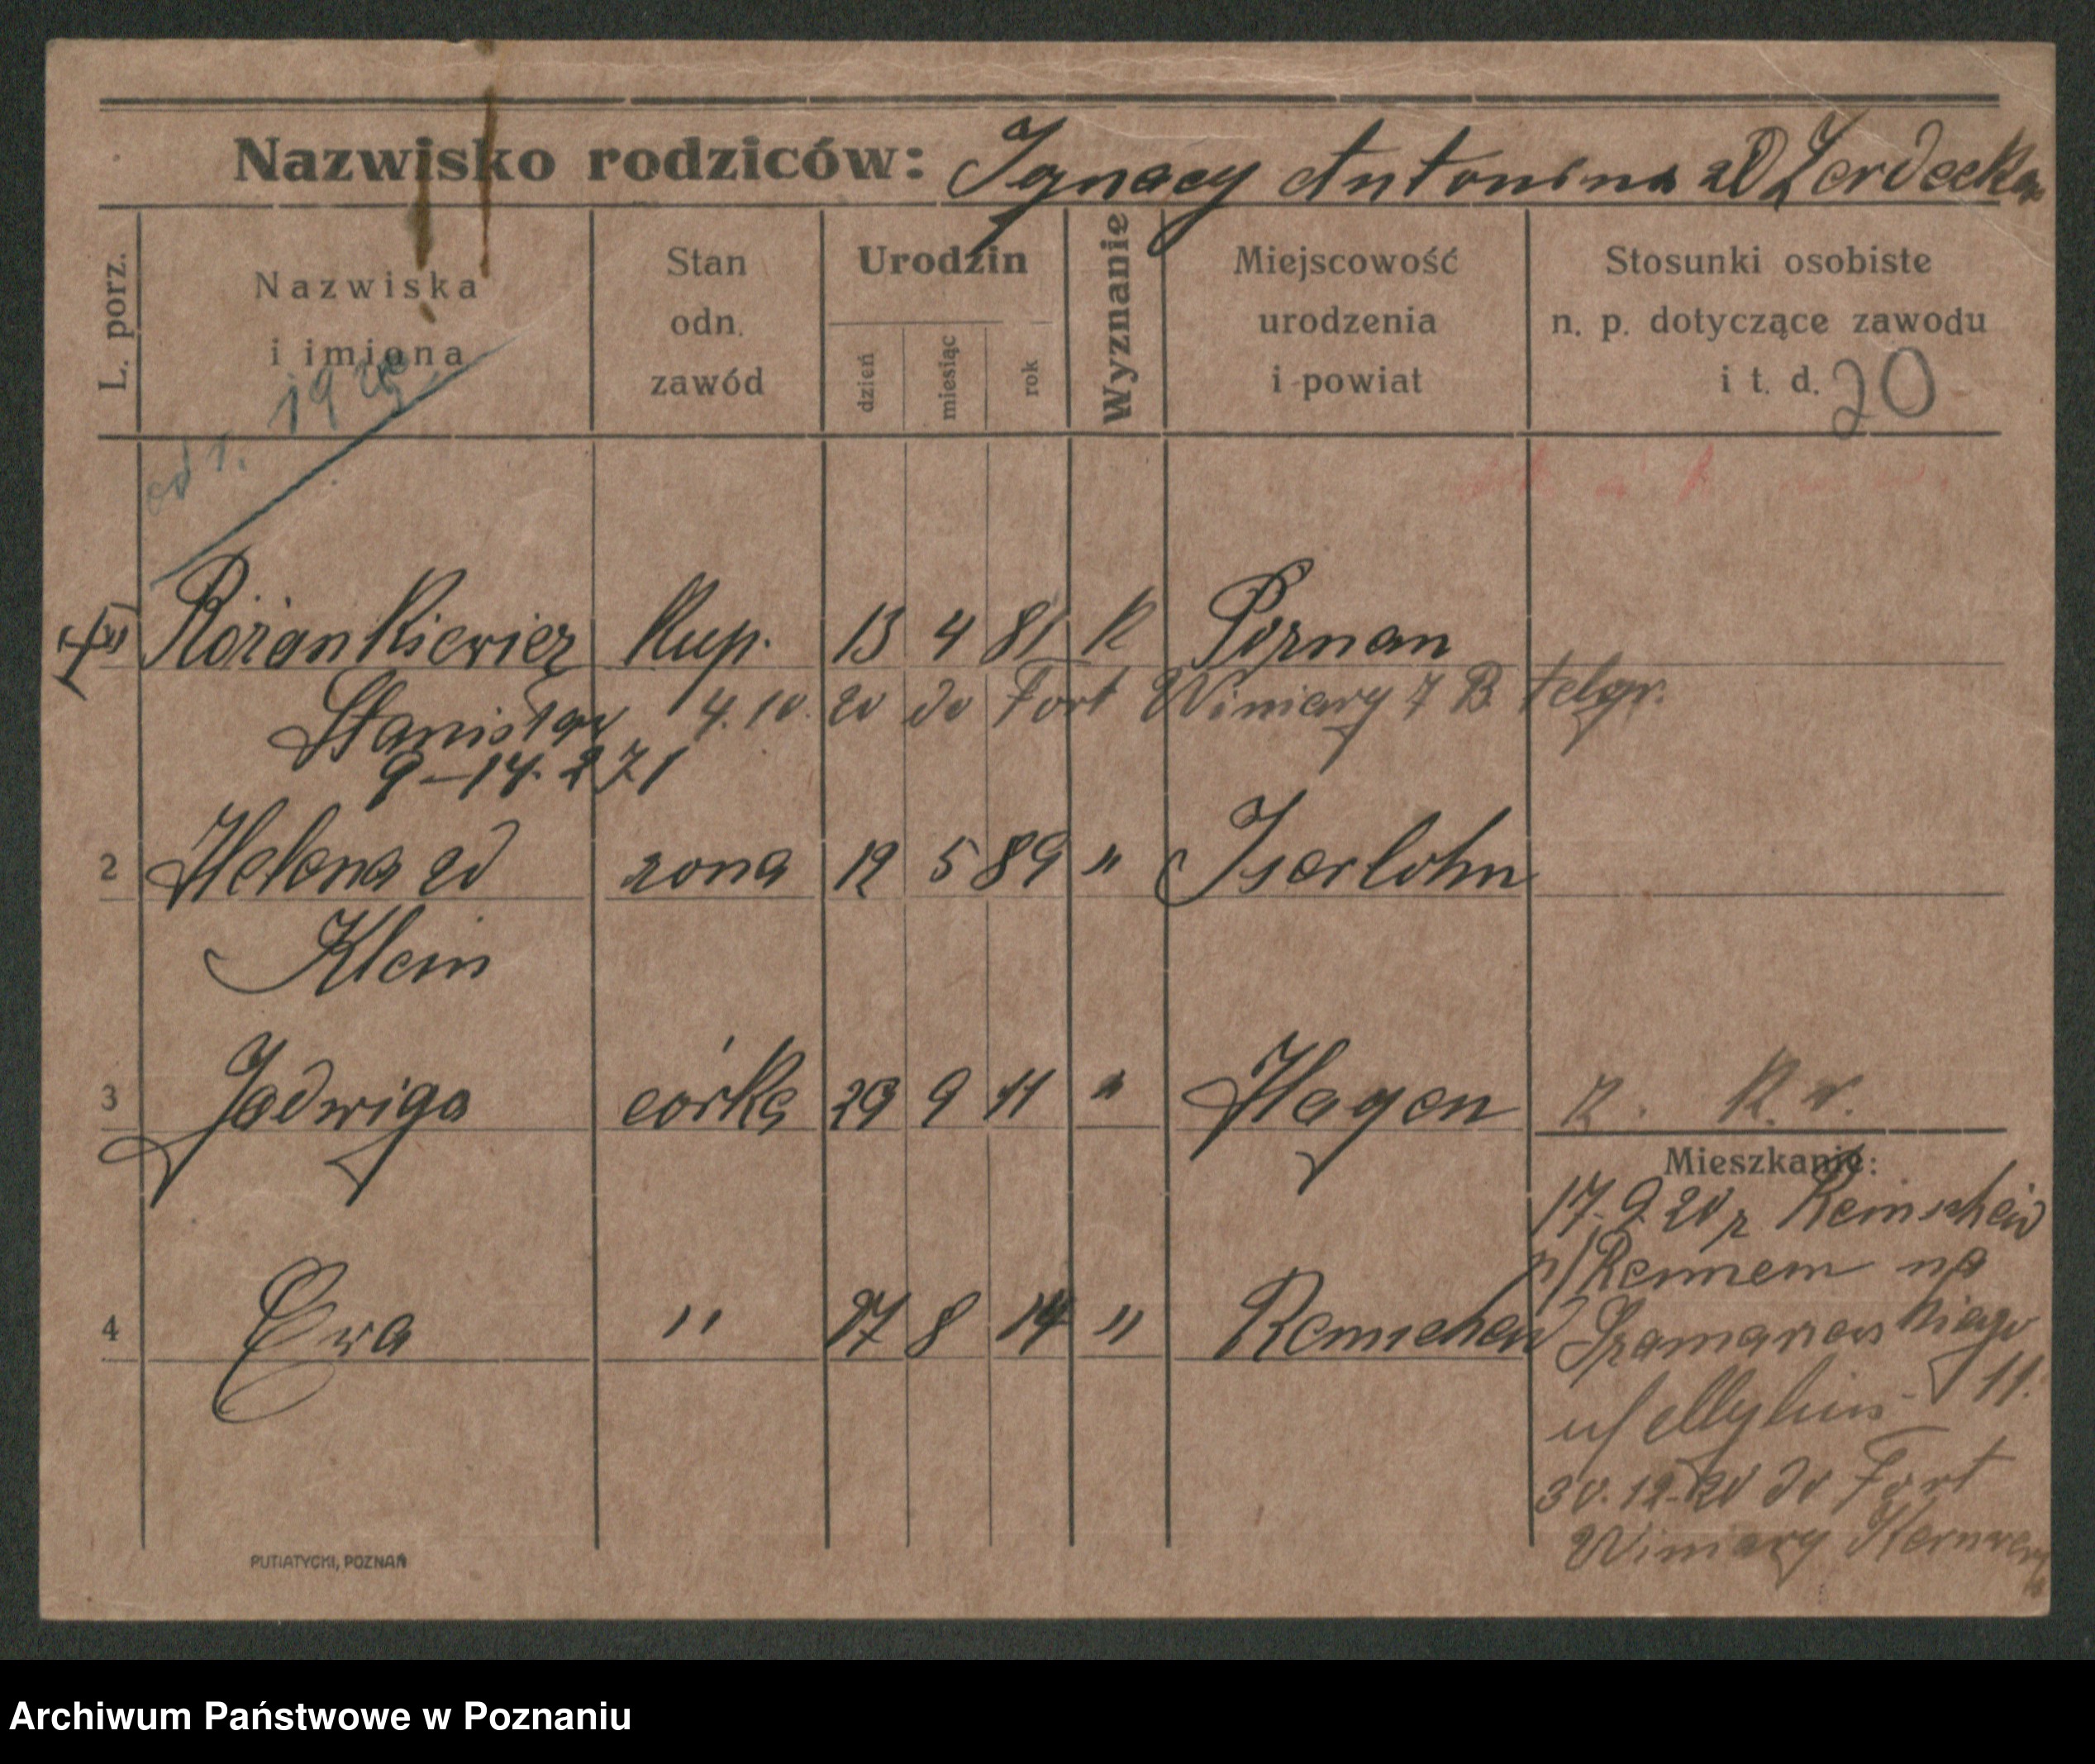 Nazwisko rodziców: Ignacy Antonina zd Zerdecka
L. porz.
Nazwiska
i imiona
Stan
odn.
zawód
Urodzin
dzień
miesiąc
rok
Wyznanie
Miejscowość
urodzenia
i powiat
Stosunki osobiste
n. p. dotyczące zawodu
i t. d. 20
od r.
Różankiewicz Kup. 13 4 81 K Poznan
Stanisław 4.10. 20 do Fort Winiary 7 B telgr.
9-14. 271
2 Helena zd zona 12 5 89 " Iserlohn
Klein
3 Jadwiga córka 29 9 11 " Hagen
Z. K. w.
Mieszkanie:
17.9.20 z Remscheid
n/Renem na
4 Ewa " 27 8 14 " Remscheid
Szamarzewskiego
11.
u/Mylius
30.12.20 do Fort
Winiary Kernwerk
PUTIATYCKI, POZNAŃ
Archiwum Państwowe w Poznaniu